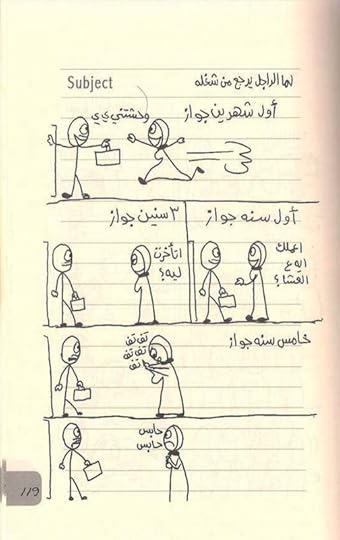 Subject
لما الراجل يرجع من شغله
أول شهرين جواز
وحشتني ي ي
أول سنه جواز
اعملك
ايه ع
العشا؟
٣ سنين جواز
اتأخرت
ليه؟
خامس سنه جواز
تف تف
تف تف
تف
حابس
حابس
119